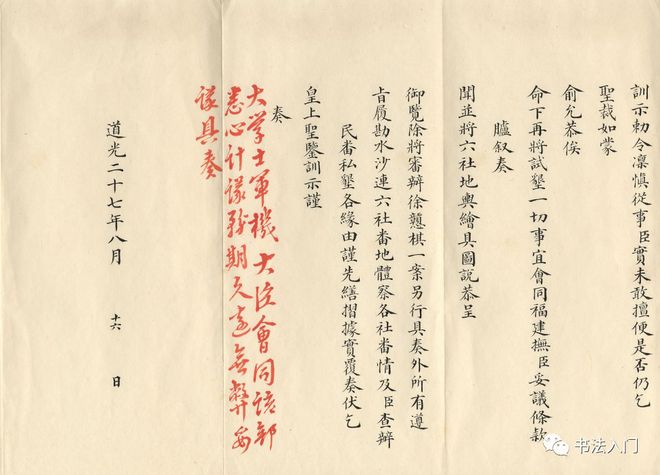 訓示勅令凜慎從事臣實未敢擅便是否仍乞
聖裁如蒙
俞允恭俟
命下再將試墾一切事宜會同福建撫臣妥議條款
臚叙奏
聞並將六社地輿繪具圖說恭呈
御覽除將審辦徐戇棋一案另行具奏外所有遵
旨履勘水沙連六社番地體察各社番情及臣查辦
民番私墾各緣由謹先繕摺據實覆奏伏乞
皇上聖鑒訓示謹
奏
大学士軍機大臣會同該部
悉心計議務期久遠無弊妥
議具奏
道光二十七年八月 十六 日
书法入门